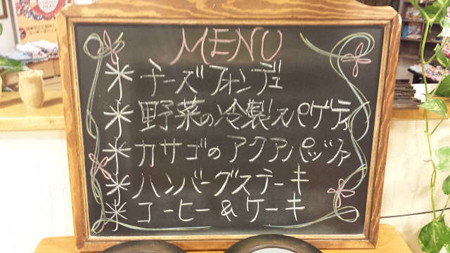 MENU
* チーズフォンデュ
* 野菜の冷製スパゲティ
* カサゴのアクアパッツァ
* ハンバーグステーキ
* コーヒー & ケーキ